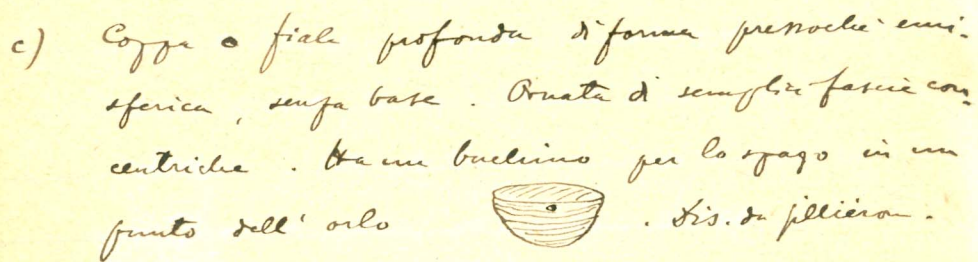 c) Coppa o fiala profonda di forma pressoché emi-
sferica, senza base. Ornata di semplici fascie con-
centriche. Ha un buchino per lo spago in un
punto dell' orlo . Dis. da jilliéron.